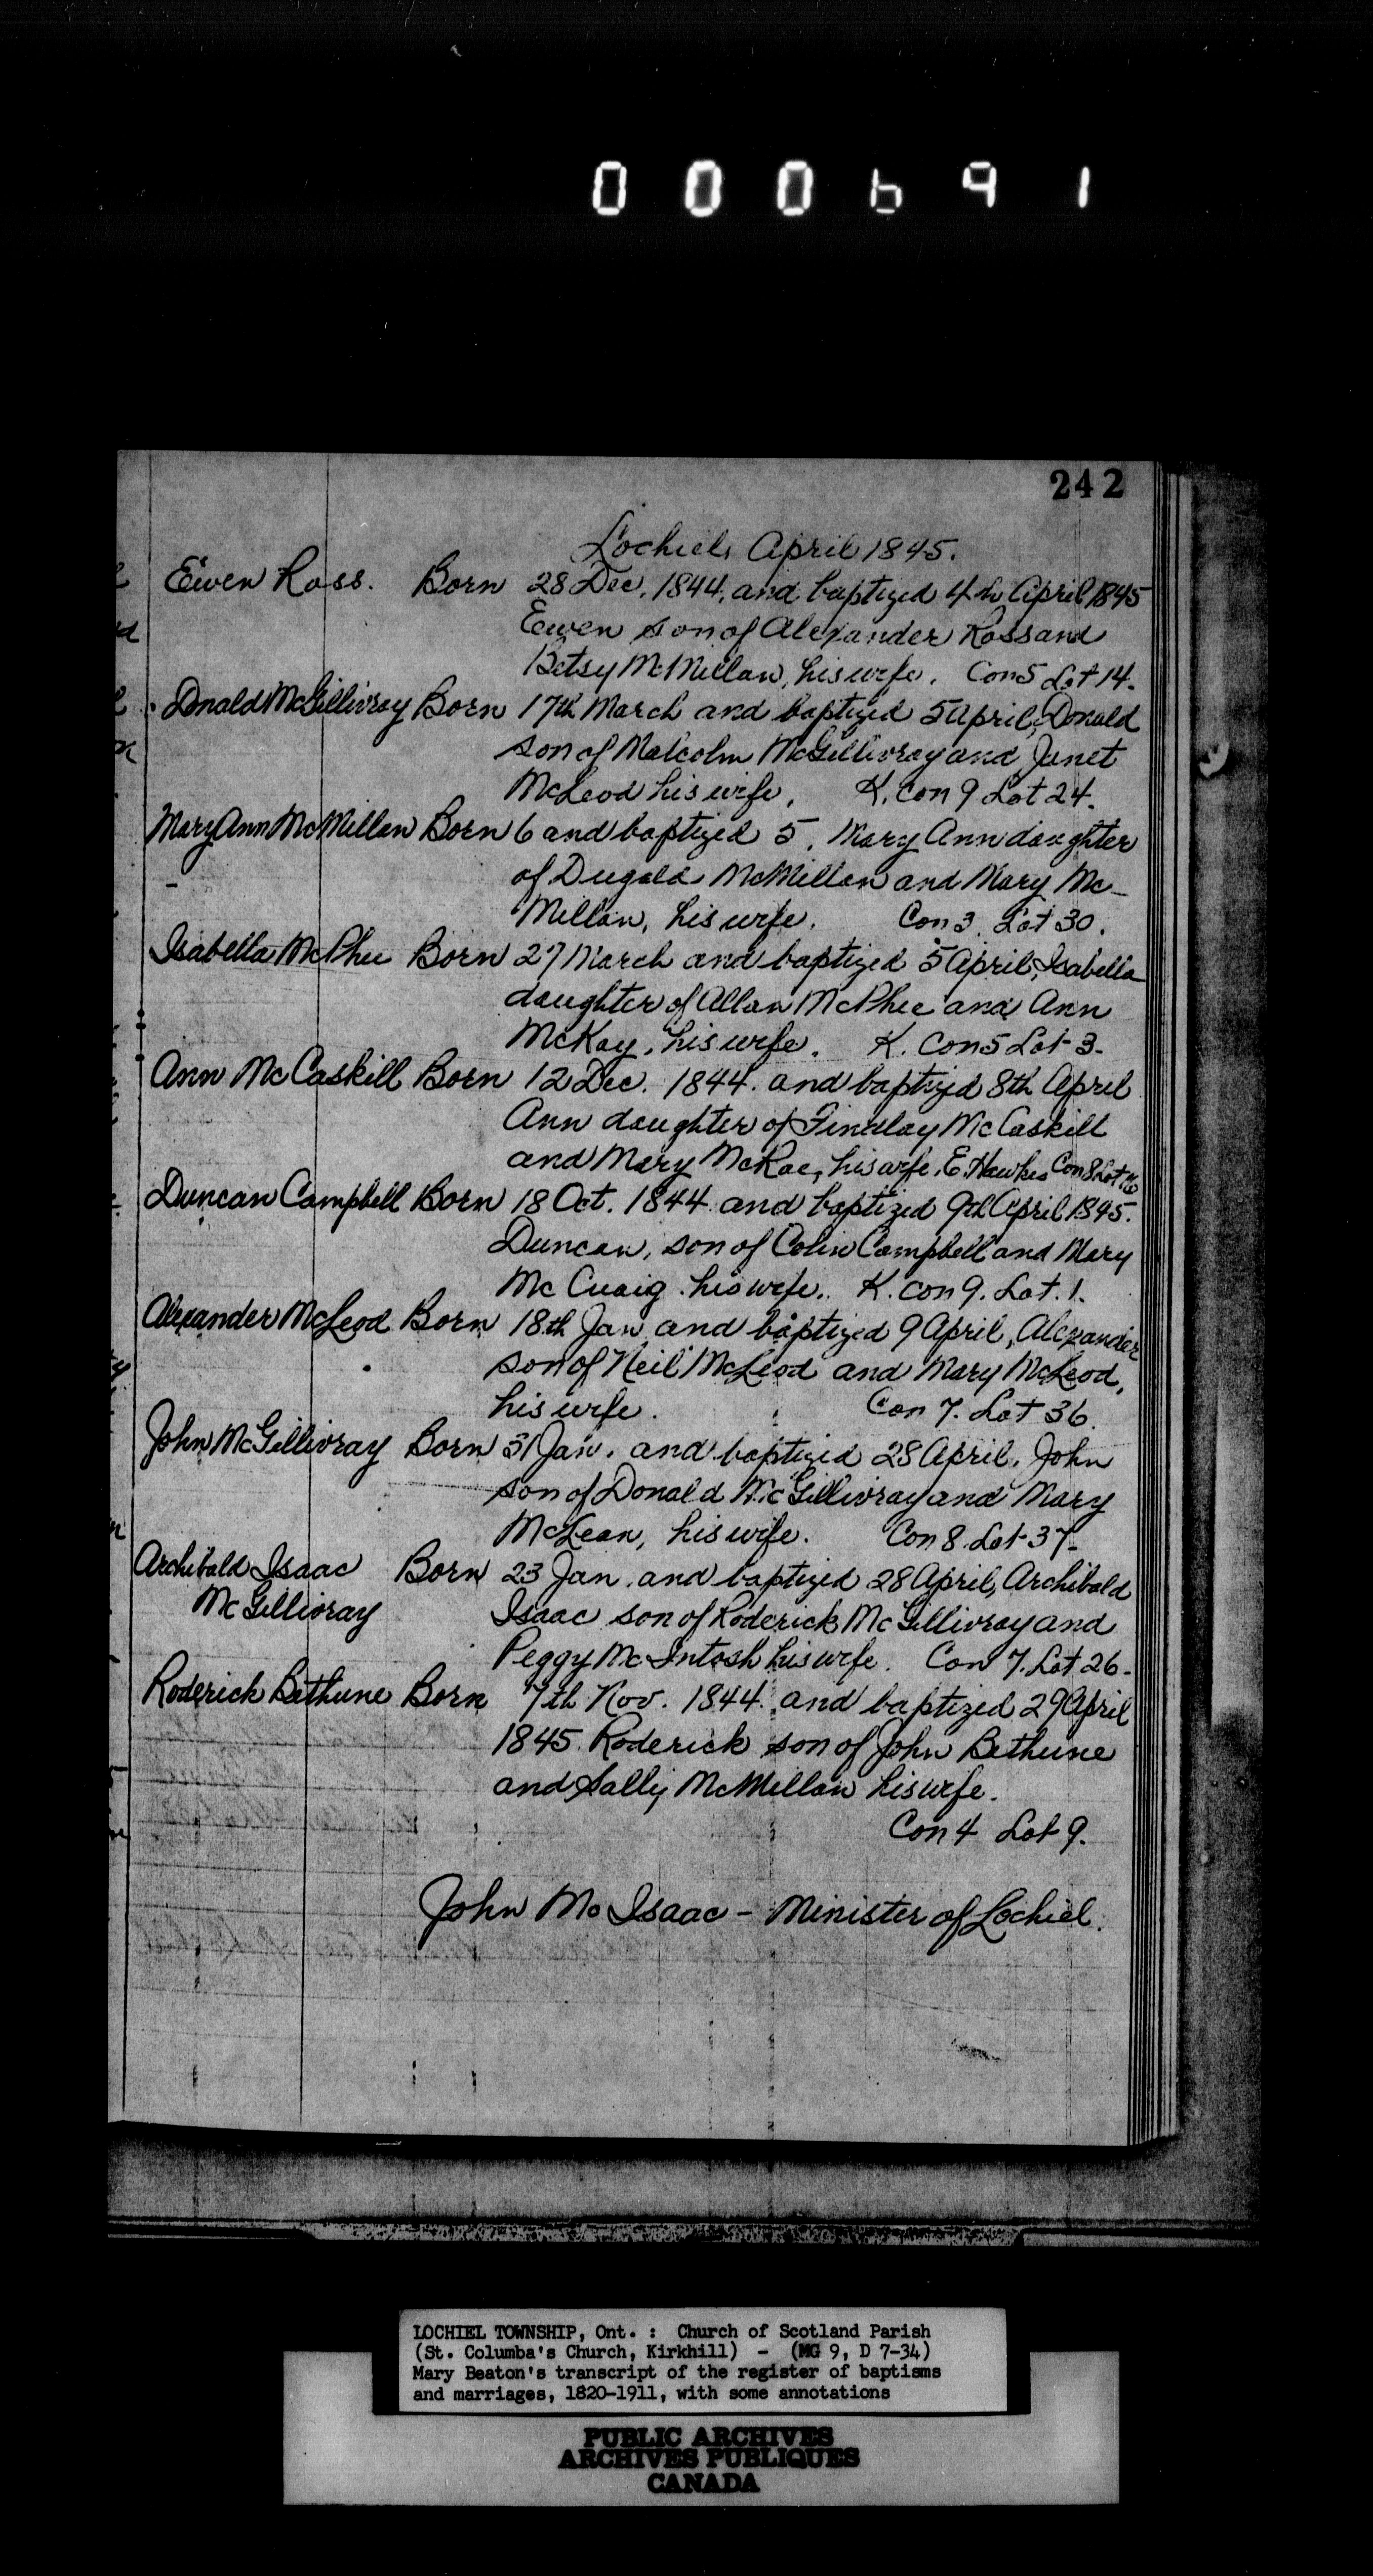 000691
242
Lochiel, April 1845.
Ewen Ross. Born 28 Dec. 1844, and baptized 4th April 1845
Ewen son of Alexander Ross and
Betsy McMillan, his wife. Con 5 Lot 14.
Donald McGillivray Born 17th March and baptized 5 April, Donald
son of Malcolm McGillivray and Janet
McLeod his wife. K. Con 9 Lot 24.
Mary Ann McMillan Born 6 and baptized 5, Mary Ann daughter
of Dugald McMillan and Mary Mc-
Millan, his wife. Con 3. Lot 30.
Isabella McPhee Born 27 March and baptized 5 April, Isabella
daughter of Allan McPhee and Ann
McKay, his wife. K. Con 5 Lot 3.
Ann McCaskill Born 12 Dec. 1844. and baptized 8th April
Ann daughter of Findlay McCaskill
and Mary McRae, his wife. E. Hawkes Con 8 Lot
Duncan Campbell Born 18 Oct. 1844 and baptized 9th April 1845.
Duncan, son of Colin Campbell and Mary
McCuaig his wife. K. Con 9. Lot. 1.
Alexander McLeod Born 18th Jan and baptized 9 April, Alexander
son of Neil McLeod and Mary McLeod,
his wife. Con 7. Lot 36.
John McGillivray Born 31 Jan. and baptized 28 April. John
son of Donald McGillivray and Mary
McLean, his wife. Con 8. Lot 37.
Archibald Isaac Born 23 Jan. and baptized 28 April, Archibald
McGillivray Isaac son of Roderick McGillivray and
Peggy McIntosh his wife. Con 7. Lot 26.
Roderick Bethune Born 7th Nov. 1844. and baptized 29 April
1845. Roderick son of John Bethune
and Sally McMillan his wife.
Con 4 Lot 9.
John McIsaac - Minister of Lochiel.
LOCHIEL TOWNSHIP, Ont. : Church of Scotland Parish
(St. Columba's Church, Kirkhill) - (MG 9, D 7-34)
Mary Beaton's transcript of the register of baptisms
and marriages, 1820-1911, with some annotations
PUBLIC ARCHIVES
ARCHIVES PUBLIQUES
CANADA